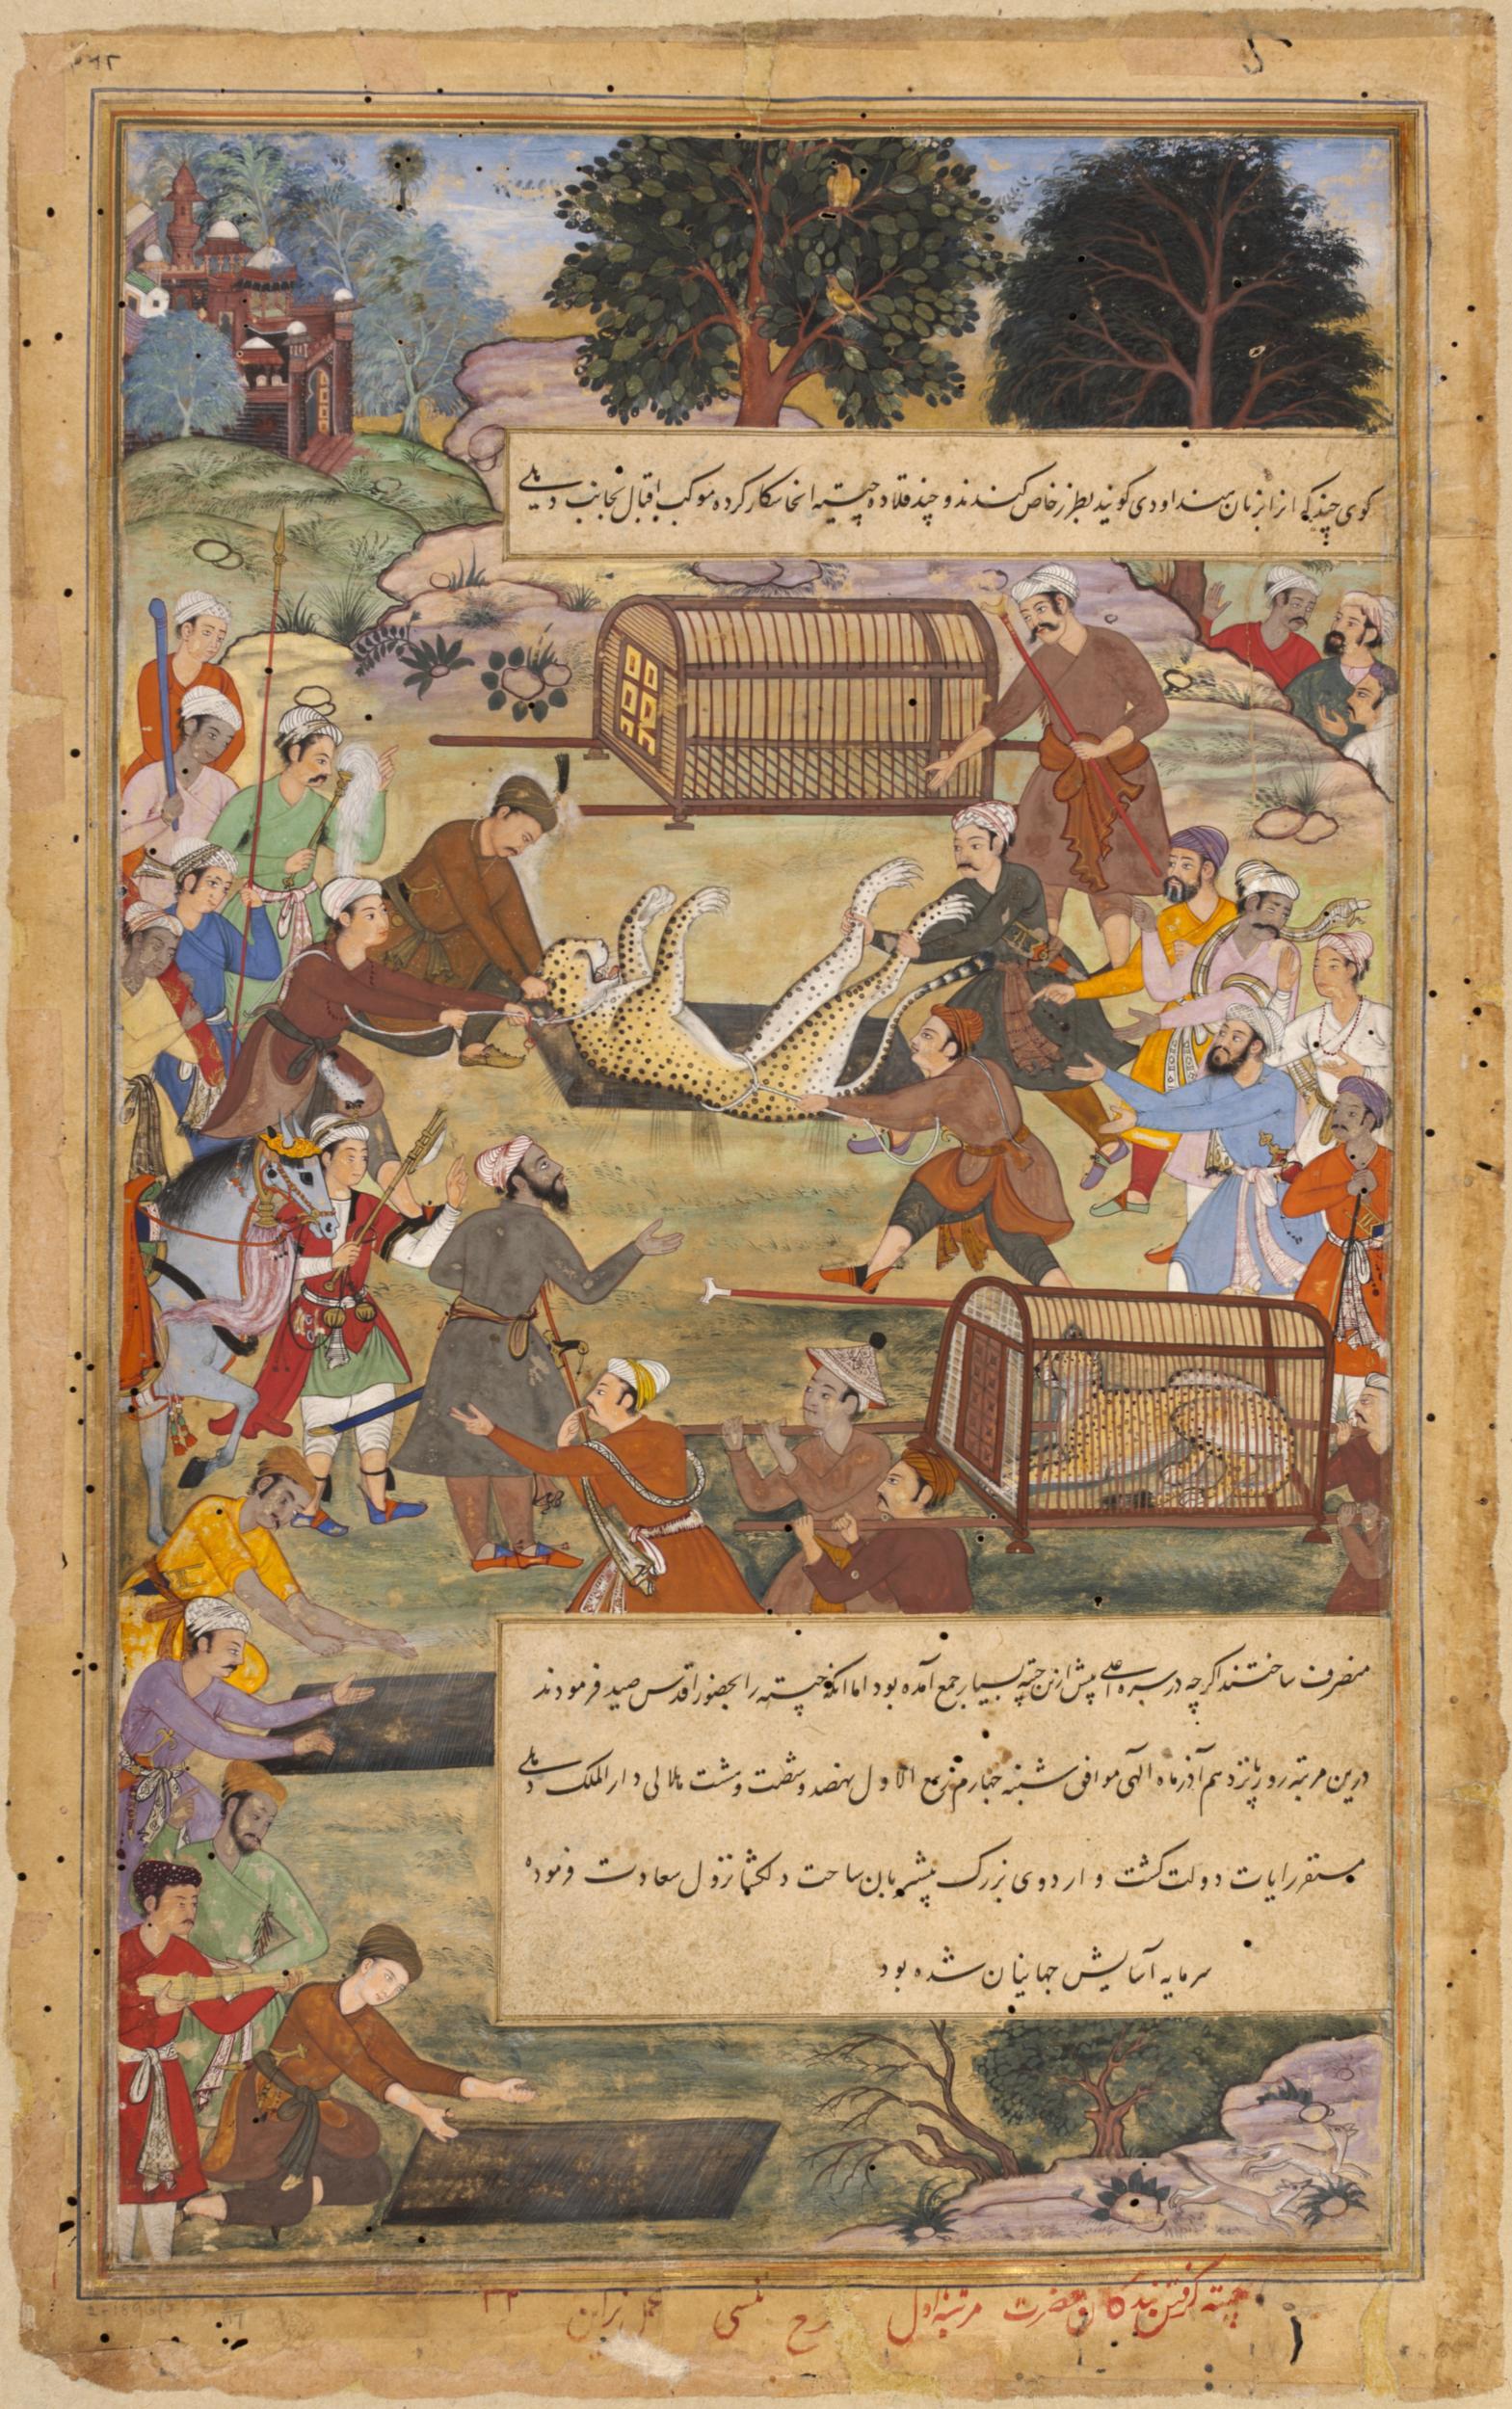 کوی چند که انرا بزبان هند اودی کویند بطرز خاص کندند و چند قلاده چیته انجا شکار کرده موکب اقبال بجانب دهلی
منصرف ساختند اکرچه در سرکار اعلی پیش ازین چیته بسیار جمع آمده بود اما انکه چیته را بحضور اقدس صید فرمودند
درین مرتبه روز پانزدهم آذر ماه الهی موافق شنبه چهارم ربیع الاول نهصد و شصت و هشت هلالی دار الملک دهلی
مستقر رایات دولت کشت و اردوی بزرک پیشتر بان ساحت دلکشا نزول سعادت فرموده
سرمایه آسایش جهانیان شده بود
چیته کرفتن بندکان حضرت مرتبه اول طرح تلسی عمل نراین